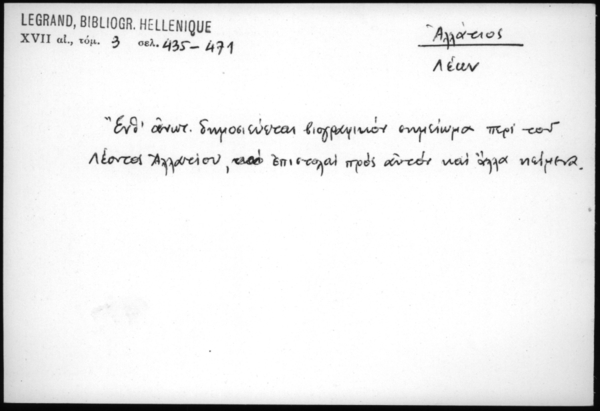 LEGRAND, BIBLIOGR. HELLENIQUE
XVII αἰ., τόμ. 3 σελ. 435-471
Ἀλλάτιος
Λέων
Ἔνθ' ἀνωτ. δημοσιεύεται βιογραφικόν σημείωμα περί τοῦ
Λέοντος Ἀλλατίου, ἐπιστολαί πρός αὐτόν καί ἄλλα κείμενα.